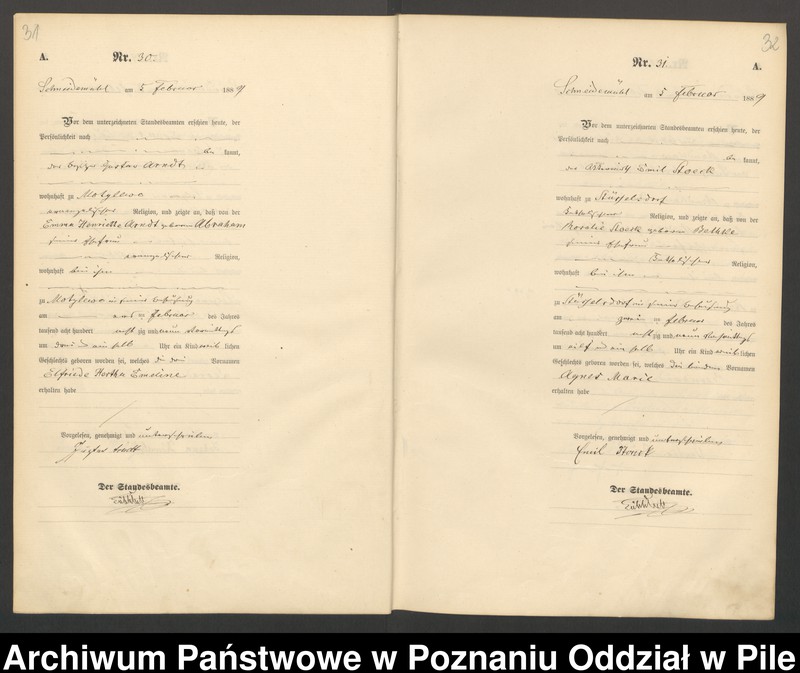 31
A. Nr. 30.
Schneidemühl am 5 Februar 1889
Vor dem unterzeichneten Standesbeamten erschien heute, der
Persönlichkeit nach
kannt,
der Gustav Arndt
wohnhaft zu Motylewo
evangelischer Religion, und zeigte an, daß von der
Emma Henriette Arndt geborene Abraham
seiner Ehefrau
evangelischer Religion,
wohnhaft bei ihm
zu Motylewo in seiner Behausung
am Februar des Jahres
tausend acht hundert acht zig und neun Vormittags
um drei und ein halb Uhr ein Kind weib lichen
Geschlechts geboren worden sei, welches die drei Vornamen
Elfriede Hertha Emeline
erhalten habe
Vorgelesen, genehmigt und unterschrieben
Gustav Arndt
Der Standesbeamte.
32
Nr. 31. A.
Schneidemühl am 5 Februar 1889
Vor dem unterzeichneten Standesbeamten erschien heute, der
Persönlichkeit nach
kannt,
der Emil Stoeck
wohnhaft zu Stüsselsdorf
katholischer Religion, und zeigte an, daß von der
Rosalie Stoeck geborene Bethke
seiner Ehefrau
katholischer Religion,
wohnhaft bei ihm
zu Stüsselsdorf in seiner Behausung
am zwei Februar des Jahres
tausend acht hundert acht zig und neun Vormittags
um elf und ein halb Uhr ein Kind weib lichen
Geschlechts geboren worden sei, welches die beiden Vornamen
Agnes Marie
erhalten habe
Vorgelesen, genehmigt und unterschrieben
Emil Stoeck
Der Standesbeamte.
Archiwum Państwowe w Poznaniu Oddział w Pile